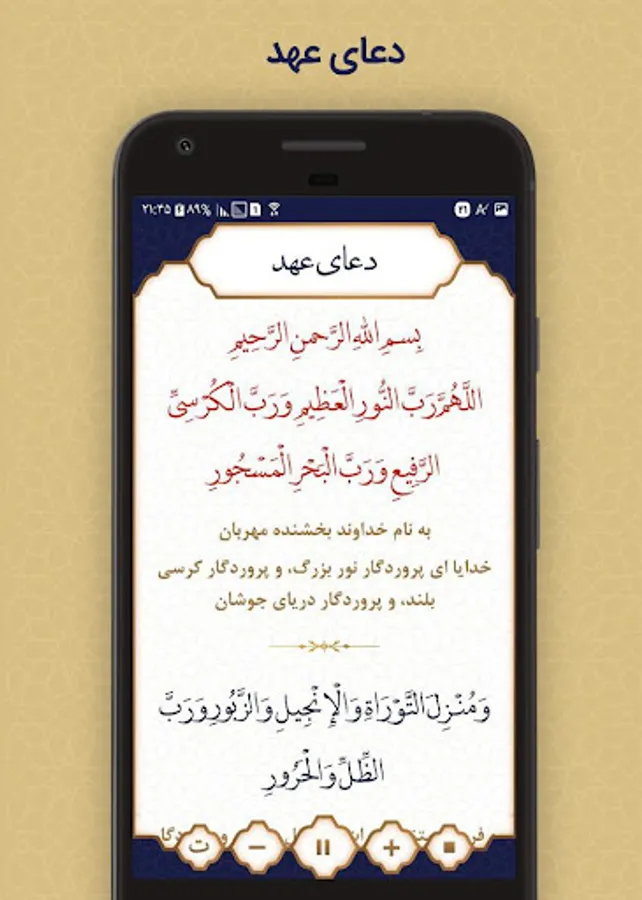 دعای عهد
۲۱:۴۵ ۸۹%
۲۱
دعای عهد
بِسمِ اللهِ الرَّحمنِ الرَّحِیمِ
اللَّهُمَّ رَبَّ النُّورِ الْعَظِیمِ وَ رَبَّ الْکُرْسِیِّ
الرَّفِیعِ وَ رَبَّ الْبَحْرِ الْمَسْجُورِ
به نام خداوند بخشنده مهربان
خدایا ای پروردگار نور بزرگ، و پروردگار کرسی
بلند، و پروردگار دریای جوشان
وَ مُنْزِلَ التَّوْرَاةِ وَ الْإِنْجِیلِ وَ الزَّبُورِ وَ رَبَّ
الظِّلِّ وَ الْحَرُورِ
ت